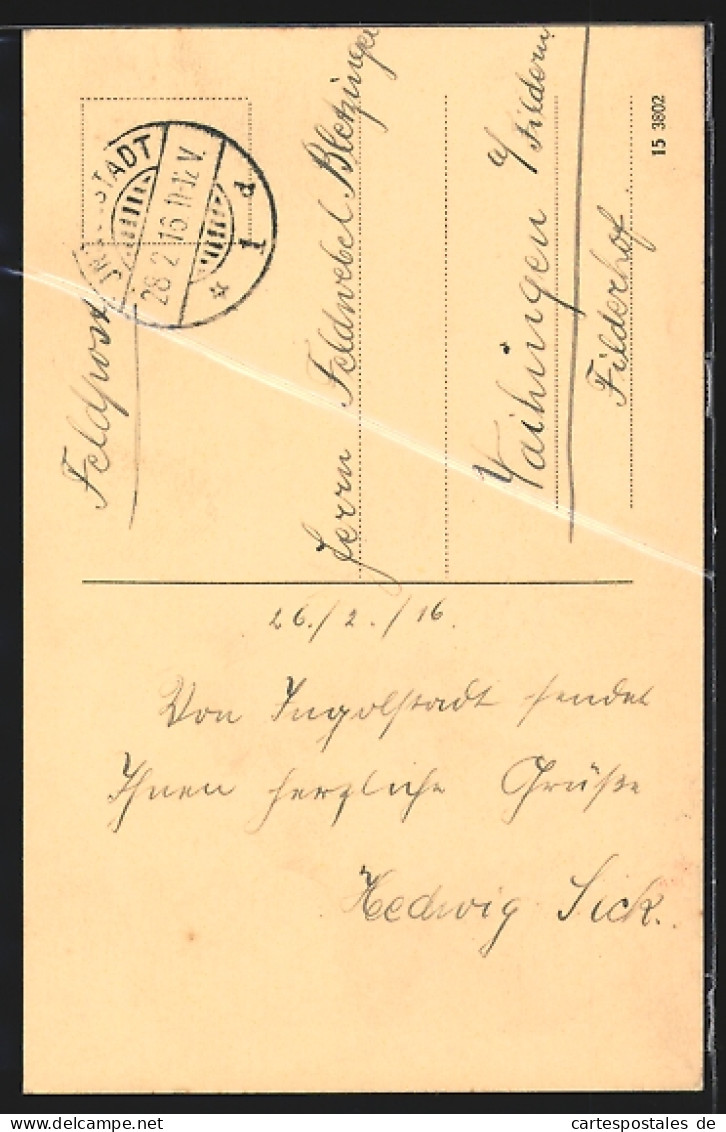 Feldpost
JNGOLSTADT
28 2 16 11-12 V.
* 1 d
Herrn Feldwebel Bletzinger
Vaihingen a/Fildern
Filderhof
15 3802
26./2./16.
Von Ingolstadt sendet
Ihnen herzliche Grüße
Hedwig Sick.
cartespostales de
cartespostales de